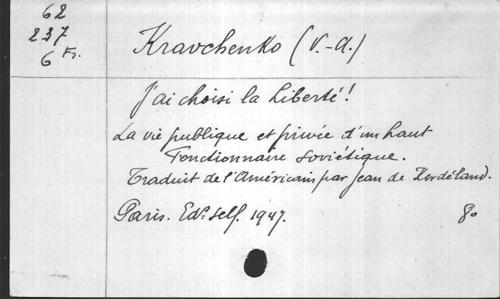 62
237
6 Fr.
Kravchenko (V.-A.)
J'ai choisi la Liberté!
La vie publique et privée d'un haut
Fonctionnaire soviétique.
Traduit de l'Américain par Jean de Kerdéland.
Paris. Edⁿˢ Self. 1947. 8º